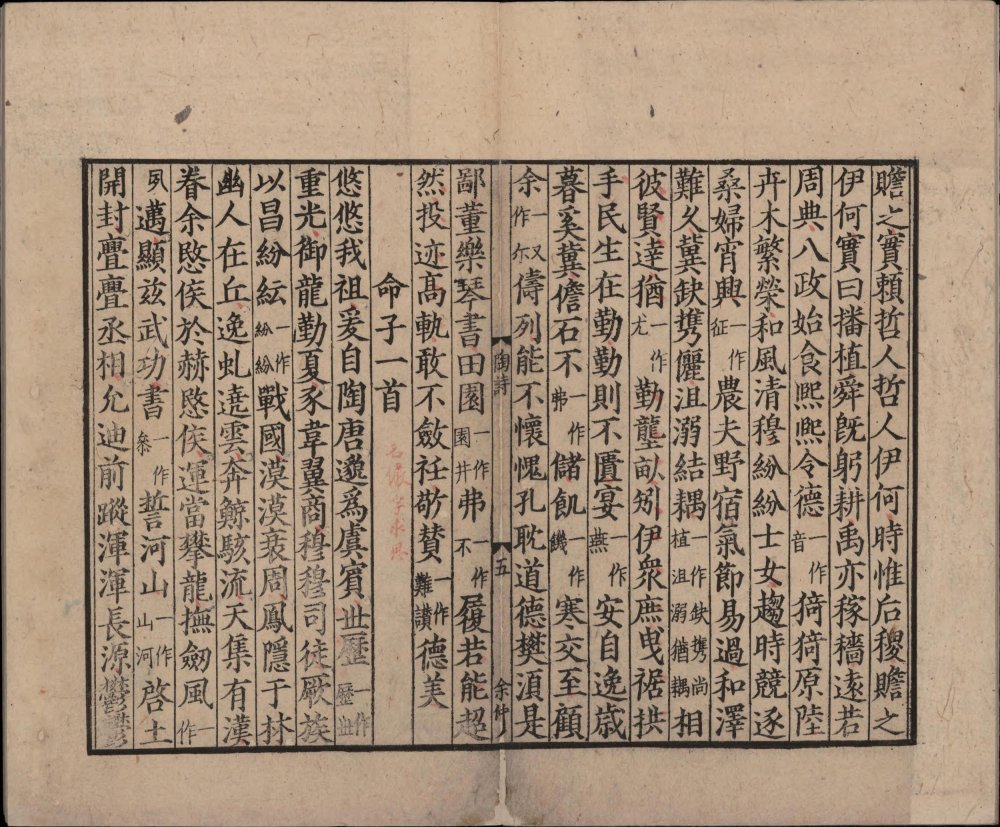 贍之實賴哲人哲人伊何時惟后稷贍之
伊何實曰播植舜旣躬耕禹亦稼穡遠若
周典八政始食熈熈令德一作音猗猗原陸
卉木繁榮和風清穆紛紛士女趨時競逐
桑婦宵興一作征農夫野宿氣節易過和澤
難久冀缺擕儷沮溺結耦一作缺擕尚植沮溺猶耦相
彼賢達猶一作尤勤壟畝矧伊衆庶曳裾拱
手民生在勤勤則不匱宴一作燕安自逸歳
暮奚冀儋石不一作弗儲飢一作饑寒交至顧
余一作尔又儔列能不懷愧孔耽道德樊湏是
陶詩
五
余仲
鄙董樂琴書田園一作園井弗一作不履若能超
然投迹高軌敢不斂衽敬賛一作難讃德美
命子一首
悠悠我祖爰自陶唐邈爲虞賓世歷一作歷世
重光御龍勤夏豕韋翼商穆穆司徒厥族
以昌紛紜一作紛紛戰國漠漠衰周鳳隱于林
幽人在丘逸虬遶雲奔鯨駭流天集有漢
眷余愍侯於赫愍侯運當攀龍撫劒風一作
夙邁顯兹武功書一作叅誓河山一作山河啓土
開封亹亹丞相允迪前蹤渾渾長源鬱鬱